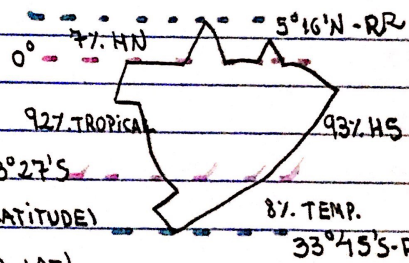 5°16'N - RR
7%. HN
0°
92%. TROPICAL
93%. HS
3°27'S
ATITUDE)
8%. TEMP.
33°45'S-R